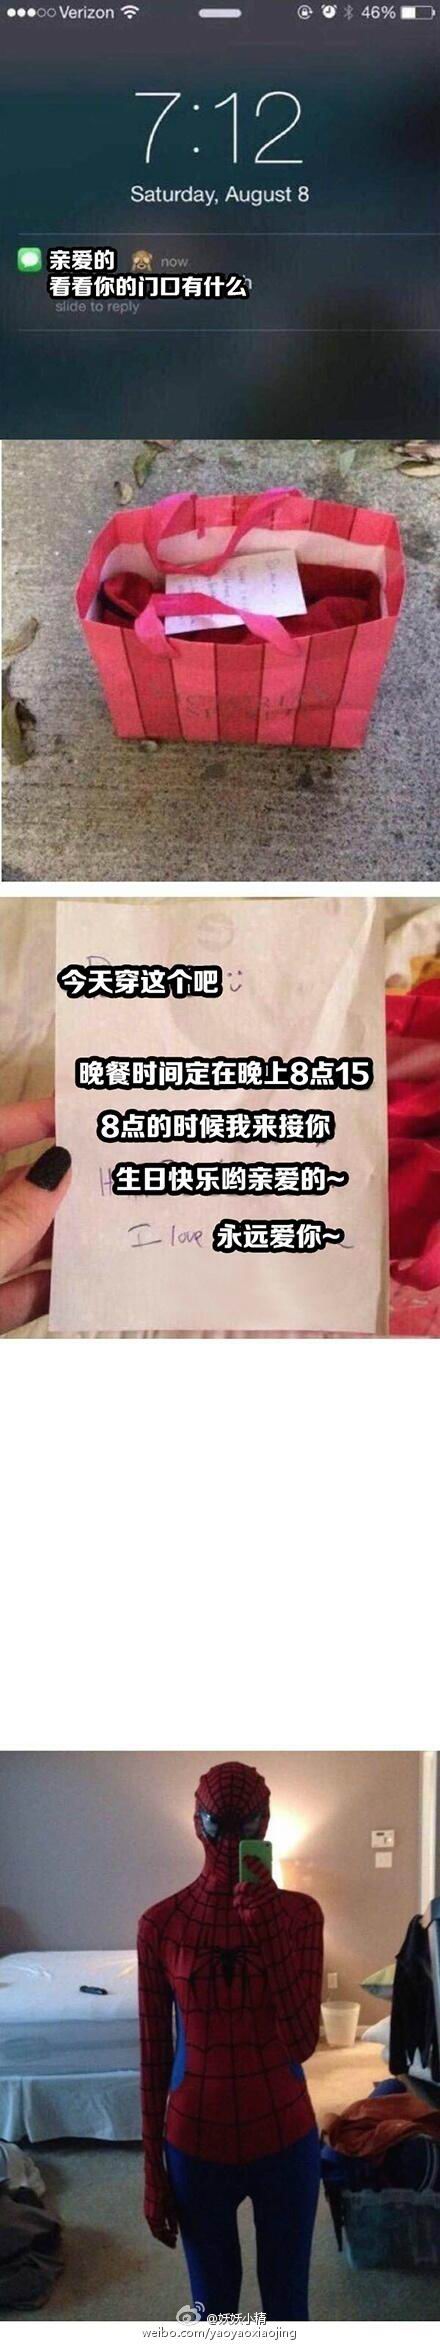 Verizon 46%
7:12
Saturday, August 8
亲爱的 now
看看你的门口有什么
slide to reply
VICTORIA'S
SECRET
今天穿这个吧
晚餐时间定在晚上8点15
8点的时候我来接你
生日快乐哟亲爱的~
I love 永远爱你~
@妖妖小精
weibo.com/yaoyaoxiaojing